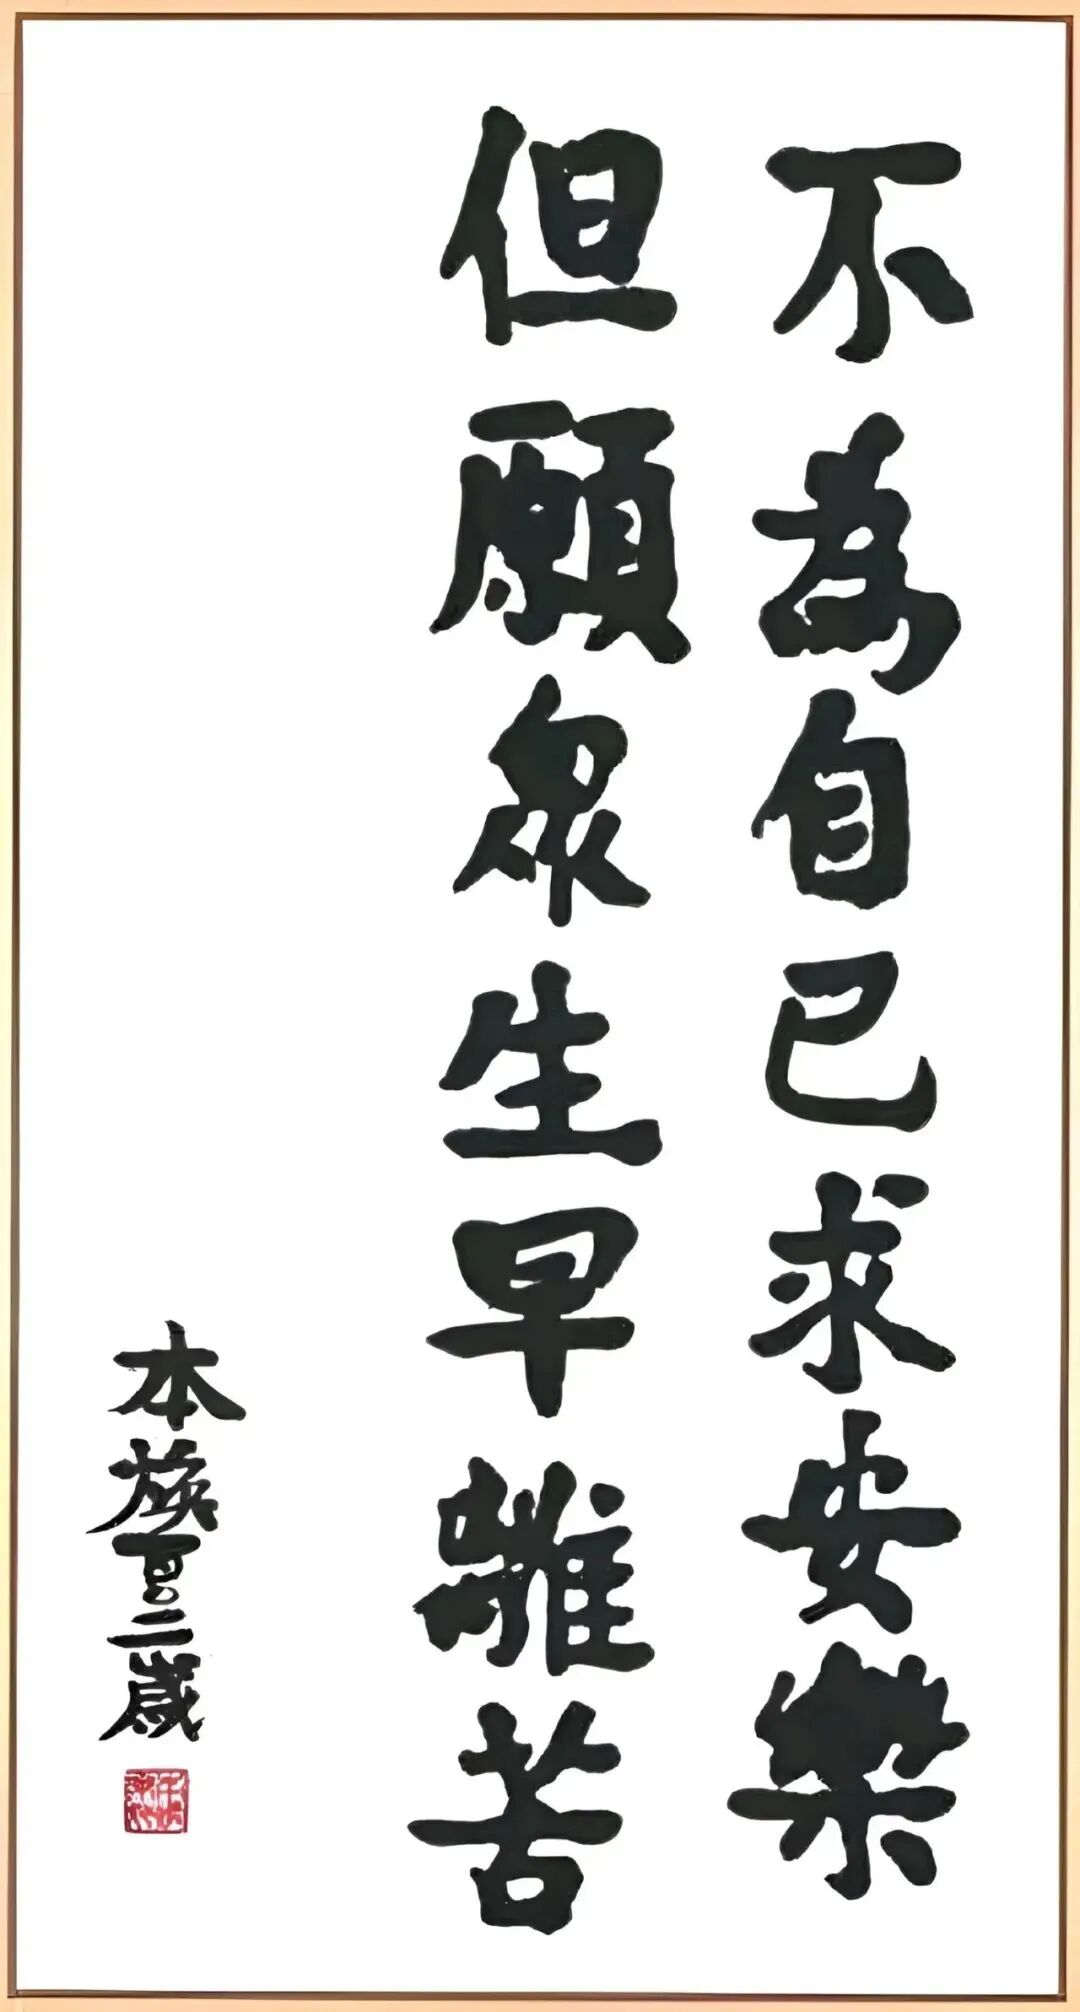 不為自己求安樂
但願衆生早離苦
本焕百〇二歲